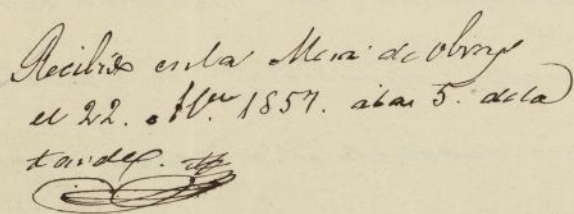 Recibido en la Mesa de obras
el 22. Nbre 1857. a las 5. de la
tarde.